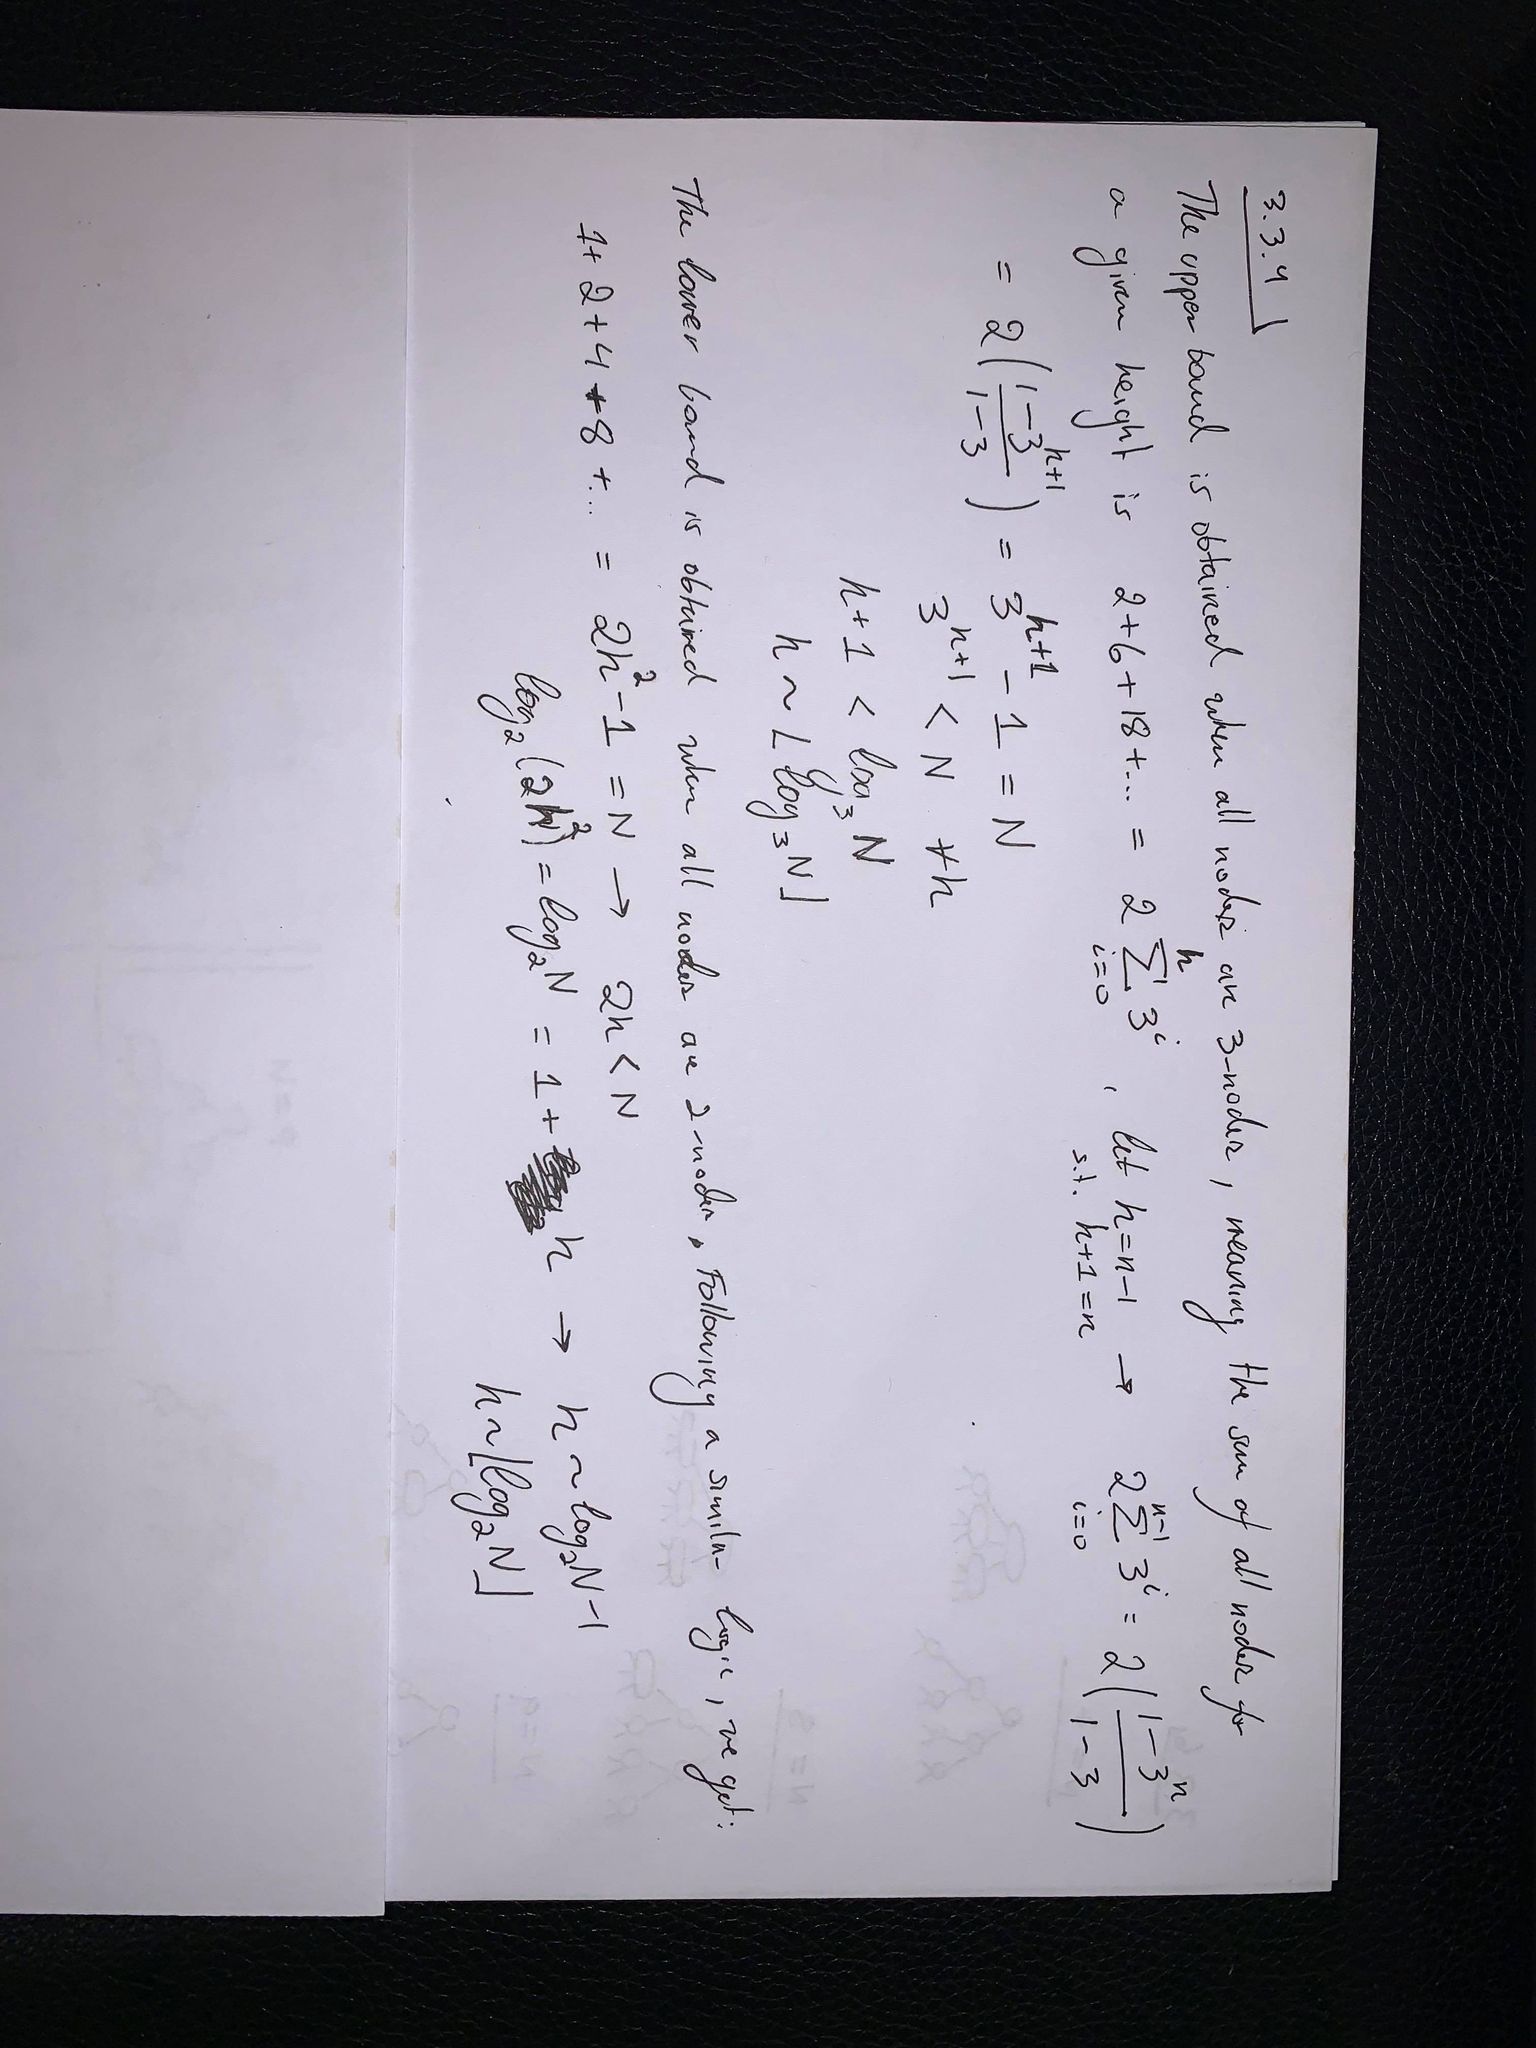 3.3.4
The upper bound is obtained when all nodes are 3-nodes, meaning the sum of all nodes for
a given height is 2+6+18+... = 2 ∑_{i=0}^{h} 3^i , let h=n-1 → 2 ∑_{i=0}^{n-1} 3^i = 2(\frac{1-3^n}{1-3})
s.t. h+1=n
= 2(\frac{1-3^{h+1}}{1-3}) = 3^{h+1} - 1 = N
3^{h+1} < N ∀h
h+1 < log_3 N
h ~ ⌊log_3 N⌋
The lower bound is obtained when all nodes are 2-nodes. Following a similar logic, we get:
1+2+4+8+... = 2h^2-1 = N → 2h < N
log_2(2h^2) = log_2 N = 1 + h → h ~ log_2 N - 1
h ~ ⌊log_2 N⌋